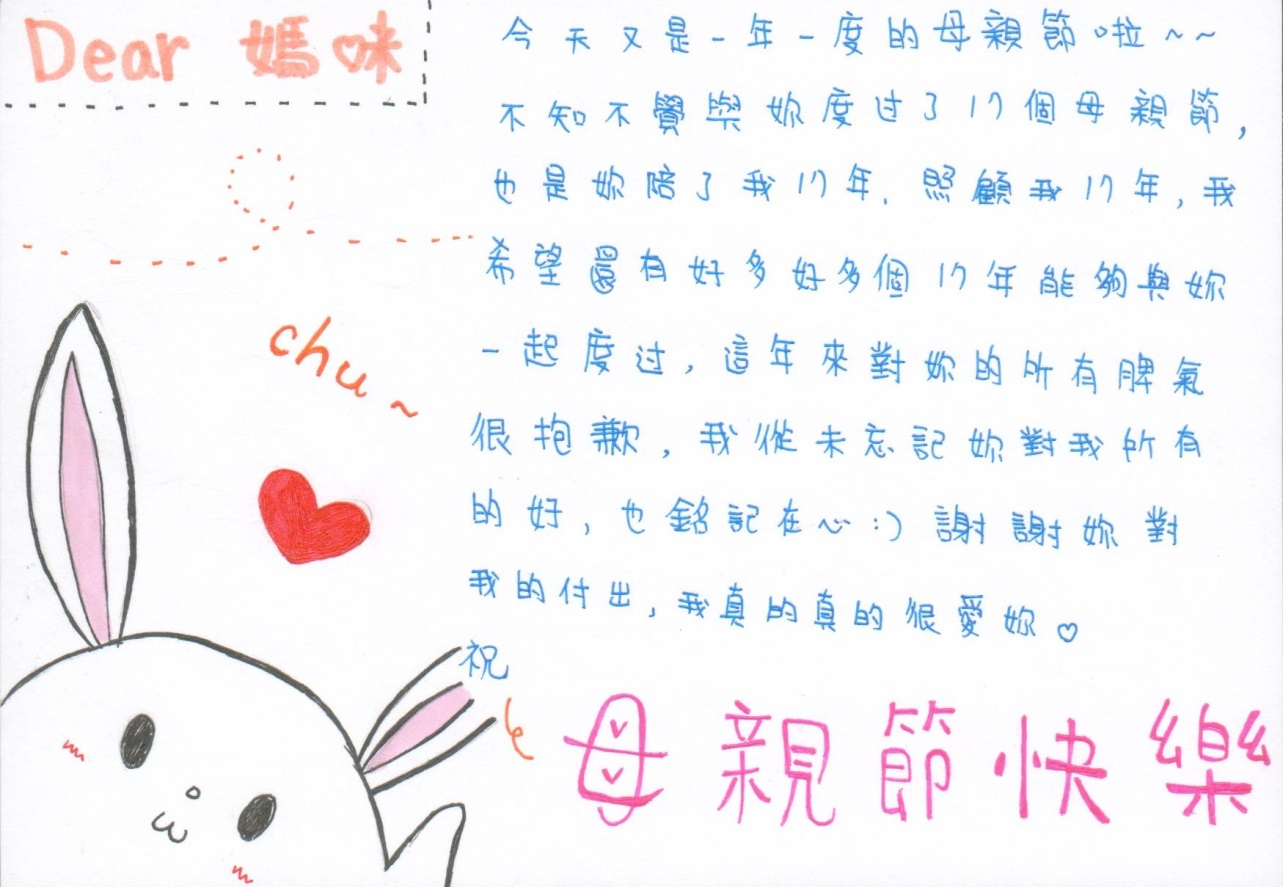 Dear 媽咪
今天又是一年一度的母親節啦~~
不知不覺與妳度过了17個母親節,
也是妳陪了我17年, 照顧我17年, 我
希望還有好多好多個17年能夠與妳
一起度过, 這年來對妳的所有脾氣
很抱歉, 我從未忘記妳對我所有
的好, 也銘記在心:) 謝謝妳對
我的付出, 我真的真的很愛妳♡
祝
母親節快樂
chu~